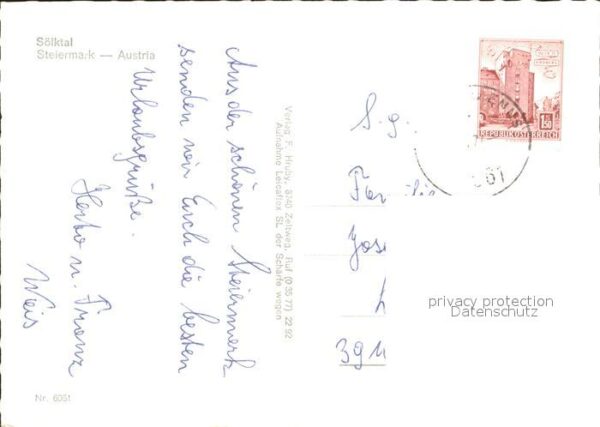 Sölktal
Steiermark — Austria
Aus der schönen Steiermark
senden wir Euch die besten
Urlaubsgrüße.
u. Franz
Weis
Verlag F. Hruby, 8740 Zeltweg, Ruf (0 35 77) 22 92
Aufnahme Leicaflex SL der Schärfe wegen
REPUBLIK ÖSTERREICH
1.50
S. g.
Fam
Jos
privacy protection
Datenschutz
Nr. 6051